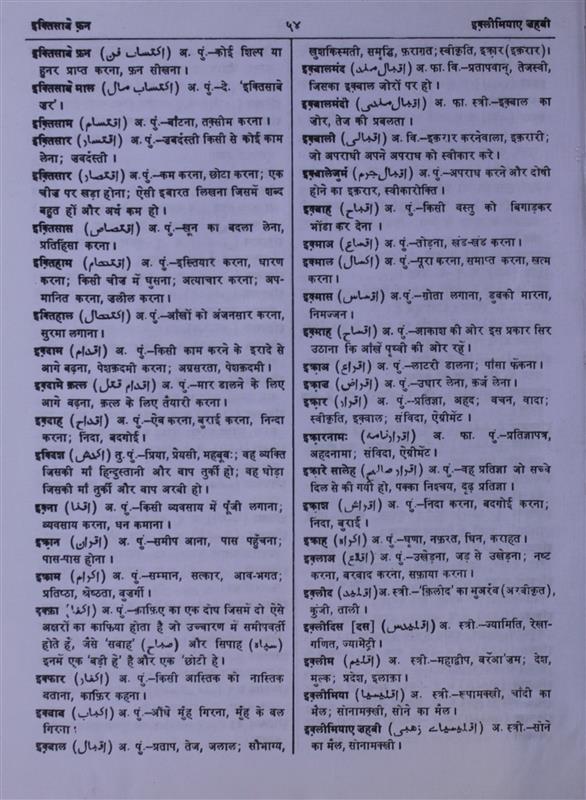 इक्तिसाबे फ़न
५४
इक़्लीमियाए ज़हबी
इक्तिसाबे फ़न (اکتساب فن) अ. पुं.–कोई शिल्प या
हुनर प्राप्त करना, फ़न सीखना।
इक्तिसाबे माल (اکتساب مال) अ. पुं.–दे. 'इक्तिसाबे
ज़र'।
इक़्तिसाम (اقتسام) अ. पुं.–बाँटना, तक़्सीम करना।
इक़्तिसार (اقتسار) अ. पुं.–ज़बर्दस्ती किसी से कोई काम
लेना; ज़बर्दस्ती।
इक़्तिसार (اقتصار) अ. पुं.–कम करना, छोटा करना; एक
चीज़ पर खड़ा होना; ऐसी इबारत लिखना जिसमें शब्द
बहुत हों और अर्थ कम हो।
इक़्तिसास (اقتصاص) अ. पुं.–ख़ून का बदला लेना,
प्रतिहिंसा करना।
इक़्तिहाम (اقتحام) अ. पुं.–इख़्तियार करना, धारण
करना; किसी चीज़ में घुसना; अत्याचार करना; अप-
मानित करना, ज़लील करना।
इक्तिहाल (اکتحال) अ. पुं.–आँखों को अंजनसार करना,
सुरमा लगाना।
इक़्दाम (اقدام) अ. पुं.–किसी काम करने के इरादे से
आगे बढ़ना, पेशक़दमी करना; अग्रसरता, पेशक़दमी।
इक़्दामे क़त्ल (اقدام قتل) अ. पुं.–मार डालने के लिए
आगे बढ़ना, क़त्ल के लिए तैयारी करना।
इक़्दाह (اقداح) अ. पुं.–ऐब करना, बुराई करना, निन्दा
करना; निंदा, बदगोई।
इक्दिश (اکدش) तु. पुं.–प्रिया, प्रेयसी, महबूब:; वह व्यक्ति
जिसकी माँ हिन्दुस्तानी और बाप तुर्की हो; वह घोड़ा
जिसकी माँ तुर्की और बाप अरबी हो।
इक़्ना (اقنا) अ. पुं.–किसी व्यवसाय में पूँजी लगाना;
व्यवसाय करना, धन कमाना।
इक़्रान (اقران) अ. पुं.–समीप आना, पास पहुँचना;
पास-पास होना।
इक्राम (اکرام) अ. पुं.–सम्मान, सत्कार, आव-भगत;
प्रतिष्ठा, श्रेष्ठता, बुज़ुर्गी।
इक्फ़ा (اکفا) अ. पुं.–क़ाफ़िए का एक दोष जिसमें दो ऐसे
अक्षरों का क़ाफ़िया होता है जो उच्चारण में समीपवर्ती
होते हैं, जैसे 'सबाह' (صباح) और सिपाह (سپاہ)
इनमें एक 'बड़ी हे' है और एक 'छोटी हे'।
इक्फ़ार (اکفار) अ. पुं.–किसी आस्तिक को नास्तिक
बताना, काफ़िर कहना।
इक्बाब (اکباب) अ. पुं.–औंधे मुँह गिरना, मुँह के बल
गिरना।
इक़्बाल (اقبال) अ. पुं.–प्रताप, तेज, जलाल; सौभाग्य,
ख़ुशक़िस्मती, समृद्धि, फ़राग़त; स्वीकृति, इक़्रार (इक़रार)।
इक़्बालमंद (اقبال مند) अ. फा. वि.–प्रतापवान्, तेजस्वी,
जिसका इक़्बाल ज़ोरों पर हो।
इक़्बालमंदी (اقبال مندی) अ. फा. स्त्री.–इक़्बाल का
ज़ोर, तेज की प्रबलता।
इक़्बाली (اقبالی) अ. वि.–इक़रार करनेवाला, इक़रारी;
जो अपराधी अपने अपराध को स्वीकार करे।
इक़्बालेजुर्म (اقبال جرم) अ. पुं.–अपराध करने और दोषी
होने का इक़रार, स्वीकारोक्ति।
इक़्बाह (اقباح) अ. पुं.–किसी वस्तु को बिगाड़कर
भोंडा कर देना।
इक़्माअ (اقماع) अ. पुं.–तोड़ना, खंड-खंड करना।
इक्माल (اکمال) अ. पुं.–पूरा करना, समाप्त करना, ख़त्म
करना।
इक़्मास (اقماس) अ. पुं.–ग़ोता लगाना, डुबकी मारना,
निमज्जन।
इक़्माह (اقماح) अ. पुं.–आकाश की ओर इस प्रकार सिर
उठाना कि आँखें पृथ्वी की ओर रहें।
इक़्राअ (اقراع) अ. पुं.–लाटरी डालना; पाँसा फेंकना।
इक़्राज़ (اقراض) अ. पुं.–उधार लेना, क़र्ज़ लेना।
इक़्रार (اقرار) अ. पुं.–प्रतिज्ञा, अहद; वचन, वादा;
स्वीकृति, इक़्बाल; संविदा, ऐग्रीमेंट।
इक़्रारनाम: (اقرارنامہ) अ. फा. पुं.–प्रतिज्ञापत्र,
अहदनामा; संविदा, ऐग्रीमेंट।
इक़्रारे सालेह (اقرار صالح) अ. पुं.–वह प्रतिज्ञा जो सच्चे
दिल से की गयी हो, पक्का निश्चय, दृढ़ प्रतिज्ञा।
इक़्राश (اقراش) अ. पुं.–निंदा करना, बदगोई करना;
निंदा, बुराई।
इक्राह (اکراہ) अ. पुं.–घृणा, नफ़रत, घिन, कराहत।
इक़्लाअ (اقلاع) अ. पुं.–उखेड़ना, जड़ से उखेड़ना; नष्ट
करना, बरबाद करना, सफ़ाया करना।
इक़्लीद (اقلید) अ. स्त्री.–'क़िलीद' का मुअर्रब (अरबीकृत),
कुंजी, ताली।
इक़्लीदिस [दस] (اقلیدس) अ. स्त्री.–ज्यामिति, रेखा-
गणित, ज्यामेट्री।
इक़्लीम (اقلیم) अ. पुं.–महाद्वीप, बर्रेआ'ज़म; देश,
मुल्क; प्रदेश, इलाक़ा।
इक़्लीमिया (اقلیمیا) अ. स्त्री.–रूपामक्खी, चाँदी का
मैल; सोनामक्खी, सोने का मैल।
इक़्लीमियाए ज़हबी (اقلیمیائے ذہبی) अ. स्त्री.–सोने
का मैल, सोनामक्खी।